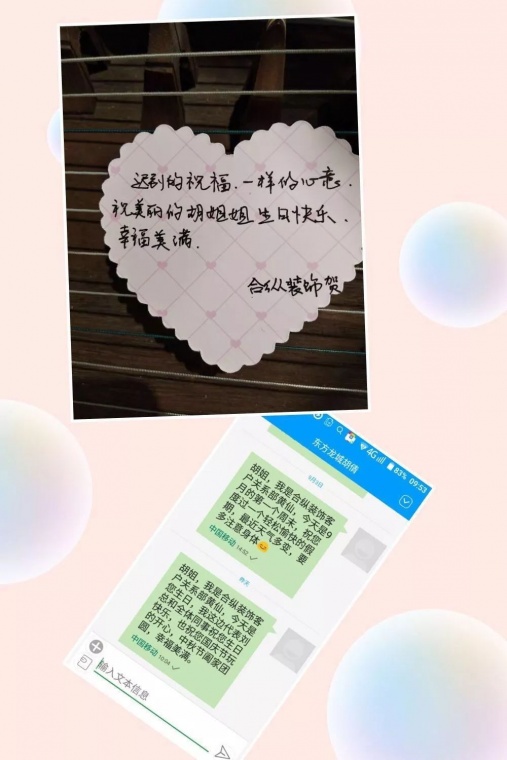 迟到的祝福.一样的心意.
祝美丽的胡姐姐生日快乐、
幸福美满.
合纵装饰贺
4G 83% 09:53
东方龙城胡倩
胡姐，我是合纵装饰客
户关系部黄仙，今天是9
月的第一个周末，祝您
度过一个轻松愉快的假
期，最近天气多变，要
多注意身体😊
中国移动 14:52
昨天
胡姐，我是合纵装饰客
户关系部黄仙，今天是
您生日，我这边代表刘
总和全体同事祝您生日
快乐，也祝您国庆节玩
的开心，中秋节阖家团
圆，幸福美满。
中国移动 10:04
输入文本信息